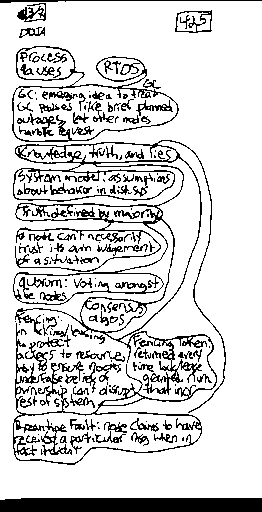 DDIA
425
Process
Pauses
RTOS
GC: emerging idea to treat GC
GC pauses like brief planned
outages, let other nodes
handle request
Knowledge, truth, and lies
System model: assumptions
about behavior in dist. sys
Truth defined by majority
A node can't necessarily
trust its own judgement
of a situation
quorum: voting amongst
the nodes
Consensus
algos
Fencing
in locking/leasing
to protect
access to resource,
way to ensure nodes
under false belief of
ownership can't disrupt
rest of system
Fencing Token:
returned every
time lock/lease
granted, num
that incr
Byzantine Fault: node claims to have
received a particular msg when in
fact it didn't